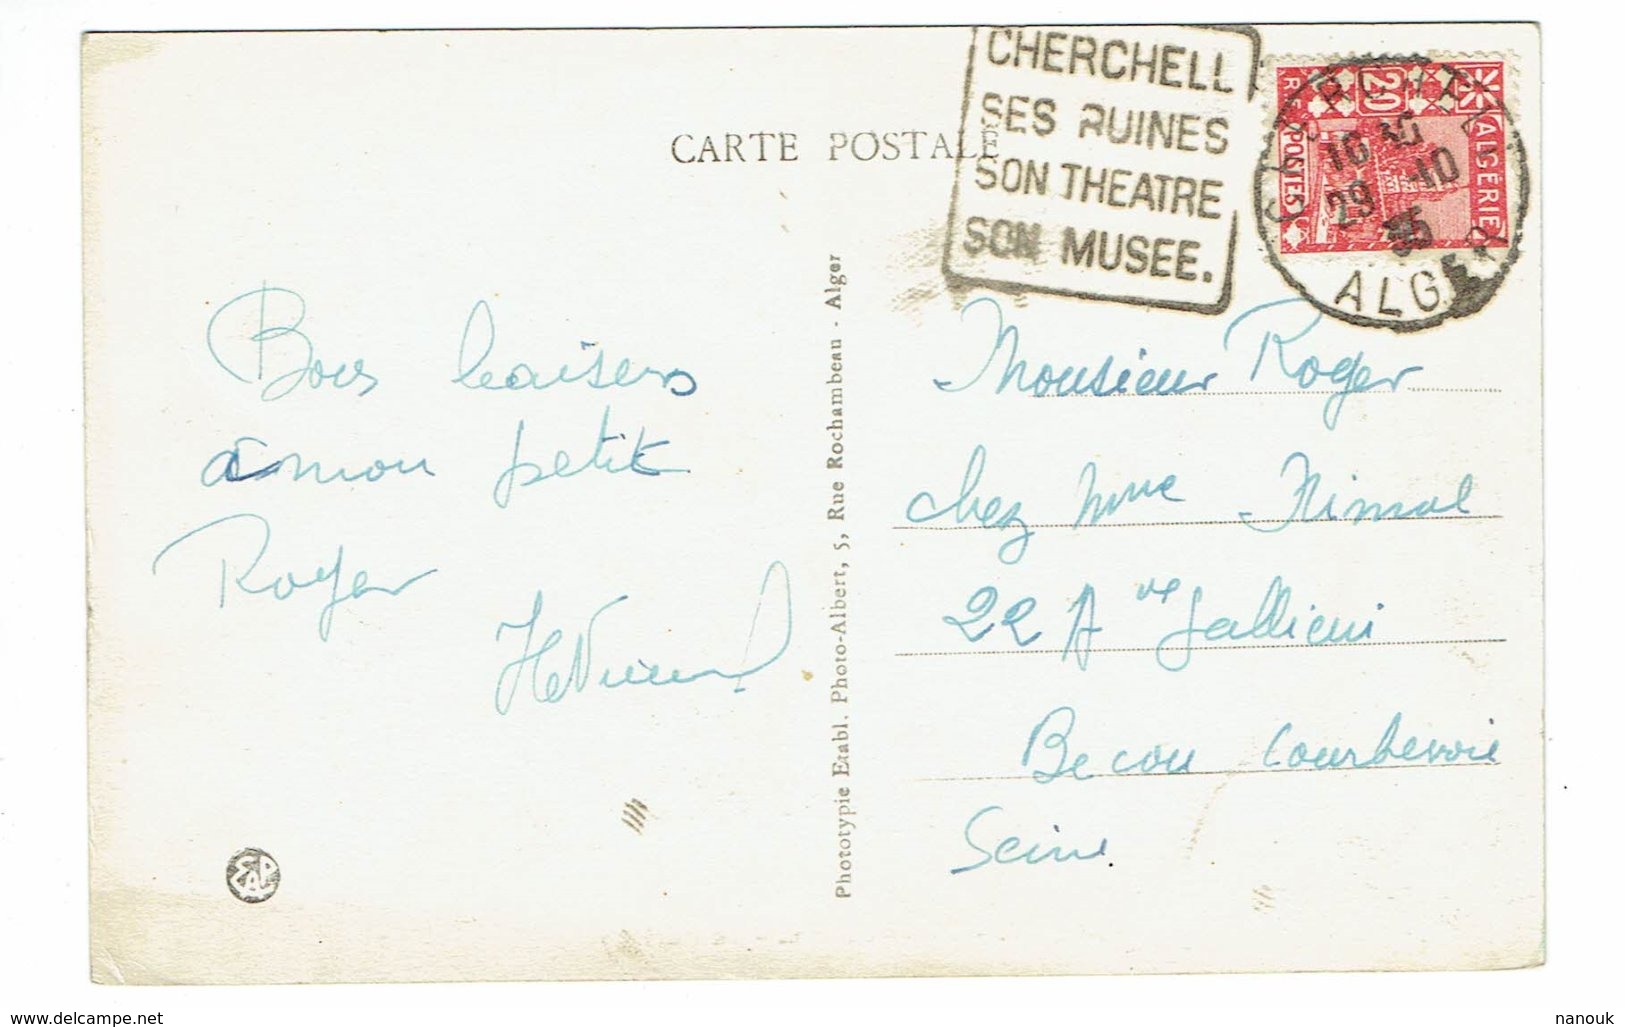 CARTE POSTALE
CHERCHELL
SES RUINES
SON THEATRE
SON MUSEE.
CHERCHELL
16 30
29 -10
35
ALGER
20
ALGÉRIE
POSTES
Bons baisers
à mon petit
Roger
Phototypie Etabl. Photo-Albert, 5, Rue Rochambeau - Alger
Monsieur Roger
chez Mme Nimal
22 Ave Gallieni
Becon Courbevoie
Seine
EAP
www.delcampe.net
nanouk